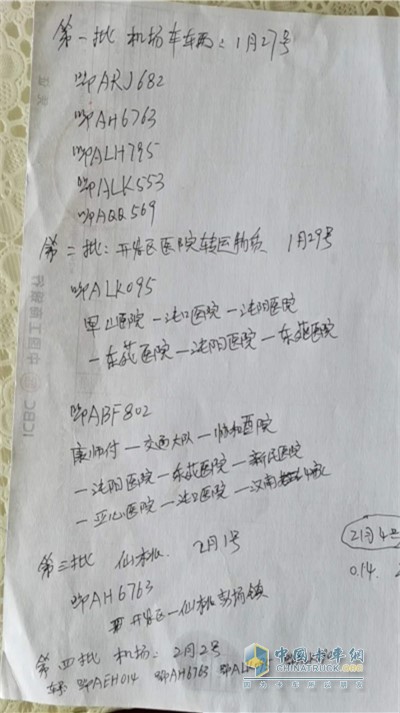 第一批 机场车车两: 1月27号
鄂ARJ682
鄂AH6763
鄂ALH795
鄂ALK553
鄂AQQ569
第二批: 开发区医院转运物资 1月29号
鄂ALK095
医院—沌口医院—沌阳医院
—东荻医院—沌阳医院—东荻医院
鄂ABF802
康师付—交通大队—协和医院
—沌阳医院—东荻医院—新民医院
—亚心医院—沌口医院—汉南
第三批 仙桃. 2月1号
2月4号
鄂AH6763
014.
开发区—仙桃 镇
第四批 机场: 2月2号
车: 鄂AEH014 鄂AH6763 鄂AL
ICBC
中国工商银行
中国卡车网
CHINATRUCK.ORG